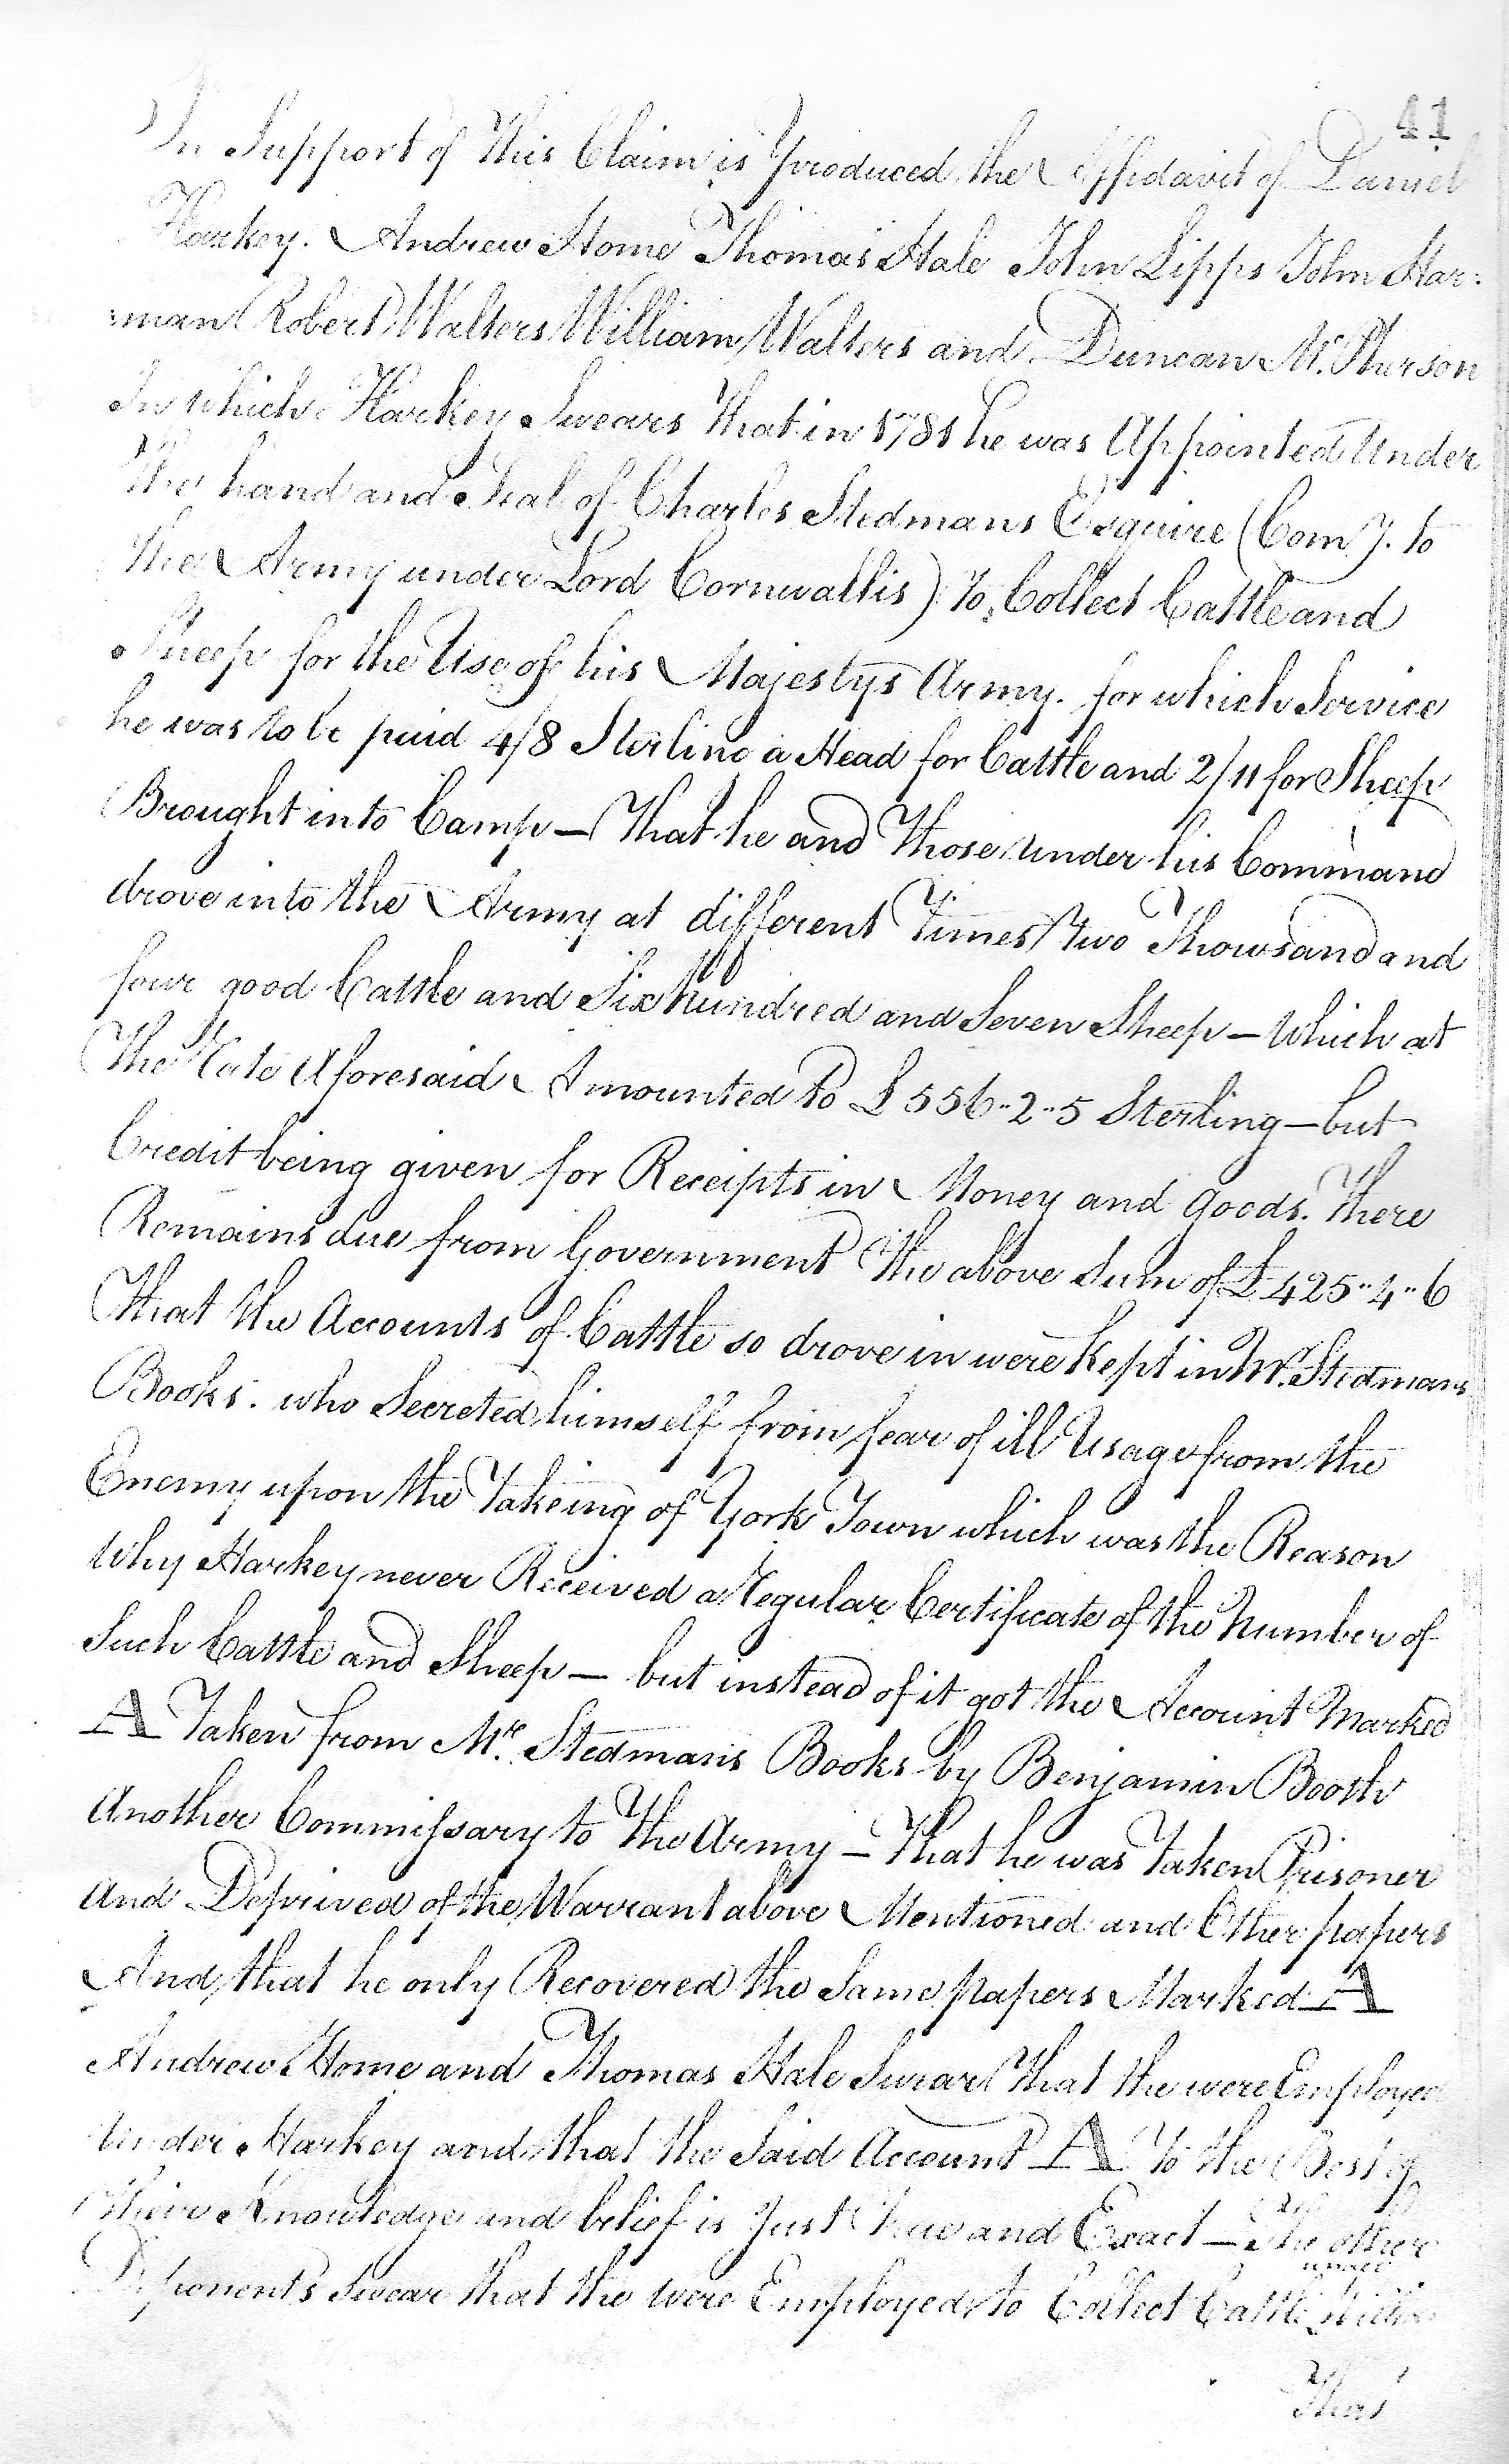 41
In Support of this Claim is produced the Affidavit of Daniel
Harkey. Andrew Home Thomas Hale John Lipps John Har:
:man Robert Walters William Walters and Duncan Mc. Pherson
In which Harkey Swears that in 1781 he was Appointed Under
the hand and Seal of Charles Stedmans Esquire (Com.y. to
the Army under Lord Cornwallis) to Collect Cattle and
Sheep for the Use of his Majestys Army. for which Service
he was to be paid 4/8 Sterling a Head for Cattle and 2/11 for Sheep
Brought into Camp — That he and Those under his Command
drove into the Army at different Times two Thowsand and
four good Cattle and Six hundred and Seven Sheep — which at
The Rate Aforesaid Amounted to £556..2..5 Sterling — but
Credit being given for Receipts in Money and goods. There
Remains due from Government the above Sum of £425..4..6
That the Accounts of Cattle so drove in were Kept in Mr. Stedmans
Books. who Secreted himself from fear of ill Usage from the
Enemy upon the Takeing of York Town which was the Reason
Why Harkey never Received a Regular Certificate of the Number of
Such Cattle and Sheep — but instead of it got the Account Marked
A Taken from Mr. Stedmans Books by Benjamin Booth
Another Commissary to the Army — That he was Taken Prisoner
And Deprived of the Warrant above Mentioned and Other papers
And that he only Recovered the Same papers Marked A
Andrew Home and Thomas Hale Swear that the were Employed
Under Harkey and that the Said Account A to the Best of
their Knowledge and belief is Just true and Exact — The other
under
Deponents Swear that the were Employed to Collect Cattle
That